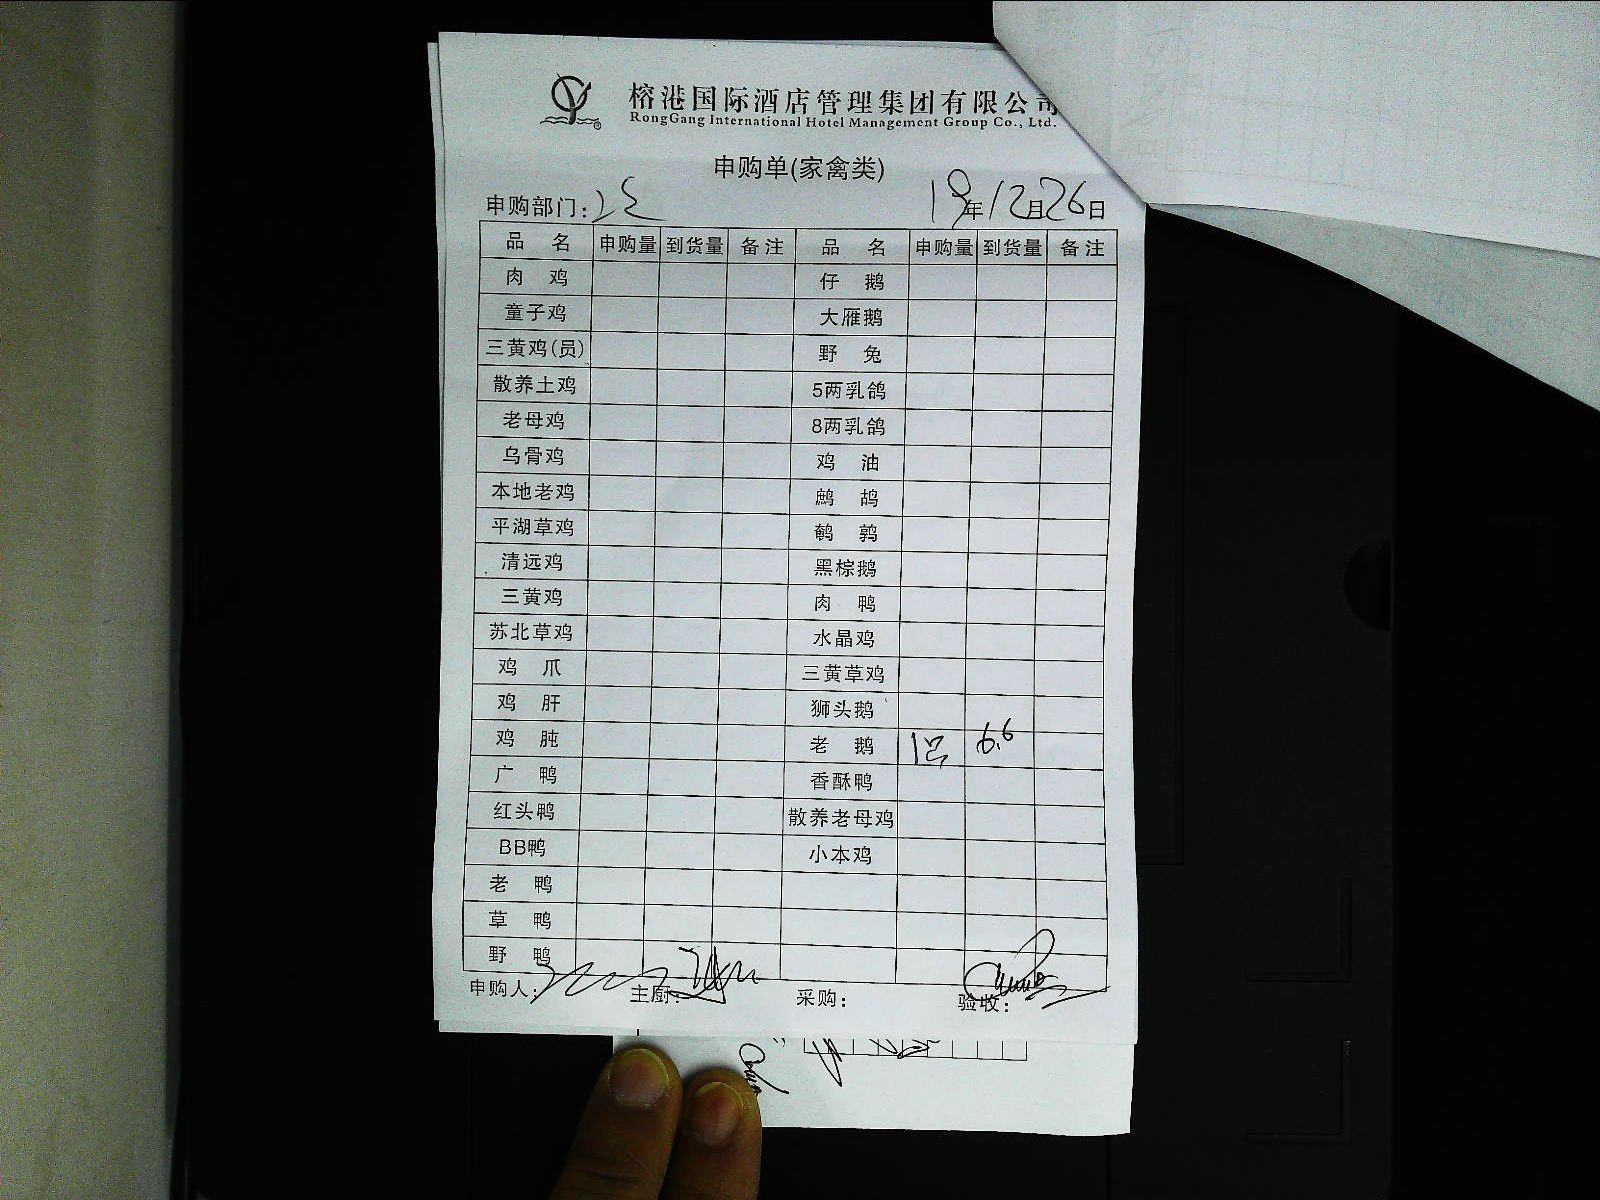 榕港国际酒店管理集团有限公司
RongGang International Hotel Management Group Co., Ltd.
申购单(家禽类)
申购部门: 19年12月26日
品 名 申购量 到货量 备注 品 名 申购量 到货量 备注
肉 鸡 仔 鹅
童子鸡 大雁鹅
三黄鸡(员) 野 兔
散养土鸡 5两乳鸽
老母鸡 8两乳鸽
乌骨鸡 鸡 油
本地老鸡 鹧 鸪
平湖草鸡 鹌 鹑
清远鸡 黑棕鹅
三黄鸡 肉 鸭
苏北草鸡 水晶鸡
鸡 爪 三黄草鸡
鸡 肝 狮头鹅
鸡 肫 老 鹅 1只 6.6
广 鸭 香酥鸭
红头鸭 散养老母鸡
BB鸭 小本鸡
老 鸭
草 鸭
野 鸭
申购人: 主厨: 采购: 验收: